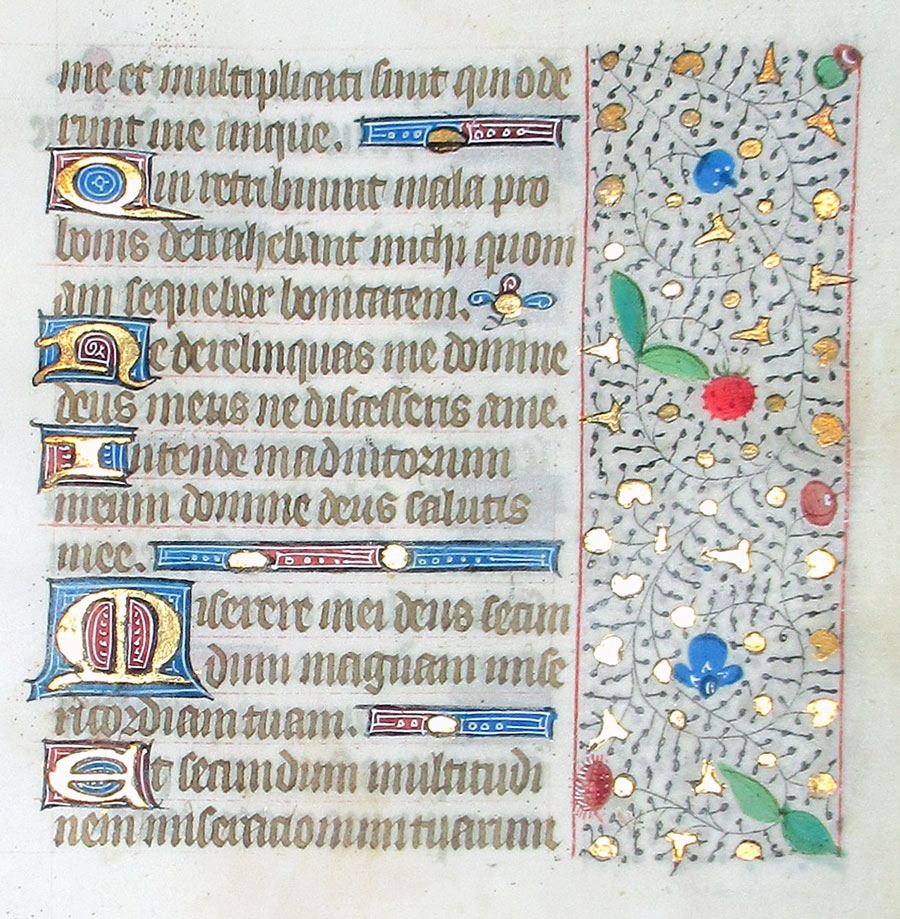 me et multiplicati sunt qui ode
runt me inique.
Qui retribuunt mala pro
bonis detrahebant michi quoni
am sequebar bonitatem.
Ne derelinquas me domine
deus meus ne discesseris a me.
Intende in adiutorium
meum domine deus salutis
mee.
Miserere mei deus secun
dum magnam mise
ricordiam tuam.
Et secundum multitudi
nem miseracionum tuarum